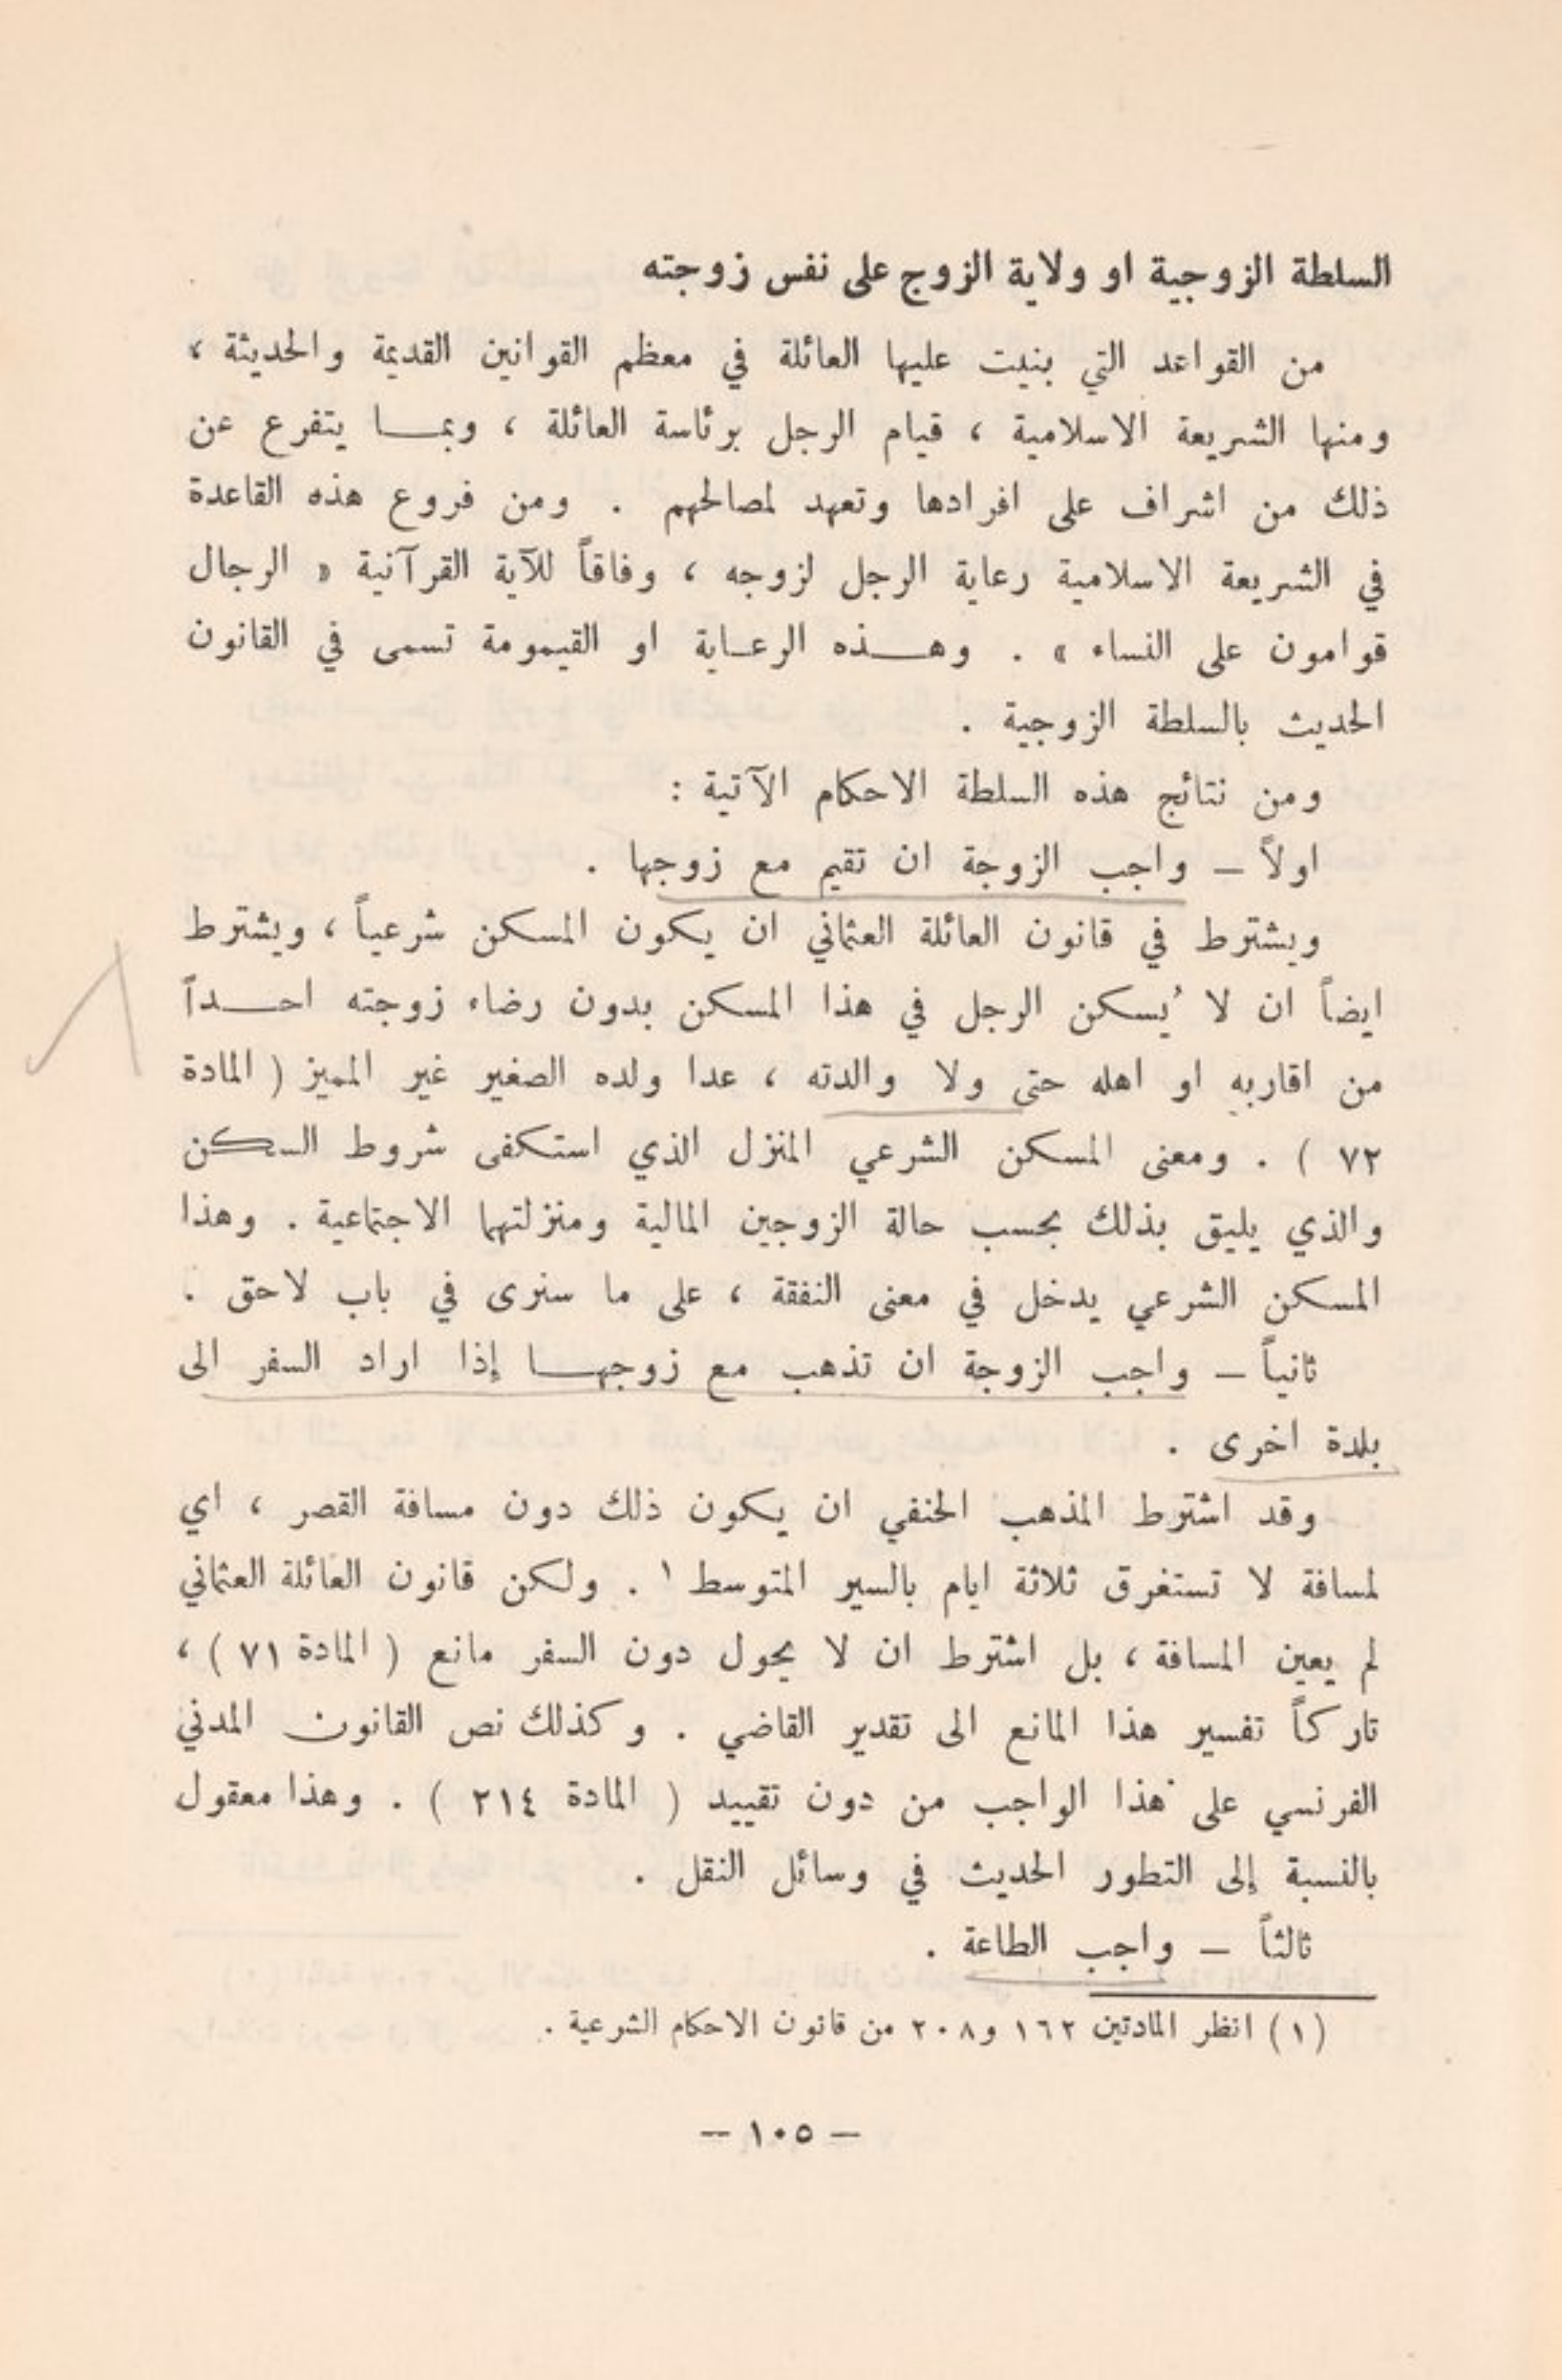 السلطة الزوجية او ولاية الزوج على نفس زوجته
من القواعد التي بنيت عليها العائلة في معظم القوانين القديمة والحديثة ،
ومنها الشريعة الاسلامية ، قيام الرجل برئاسة العائلة ، وبما يتفرع عن
ذلك من اشراف على افرادها وتعهد لمصالحهم . ومن فروع هذه القاعدة
في الشريعة الاسلامية رعاية الرجل لزوجه ، وفاقاً للآية القرآنية « الرجال
قوامون على النساء » . وهذه الرعاية او القيمومة تسمى في القانون
الحديث بالسلطة الزوجية .
ومن نتائج هذه السلطة الاحكام الآتية :
اولاً – واجب الزوجة ان تقيم مع زوجها .
ويشترط في قانون العائلة العثماني ان يكون المسكن شرعياً ، ويشترط
ايضاً ان لا يُسكن الرجل في هذا المسكن بدون رضاء زوجته احداً
من اقاربه او اهله حتى ولا والدته ، عدا ولده الصغير غير المميز ( المادة
٧٢ ) . ومعنى المسكن الشرعي المنزل الذي استكفى شروط السكن
والذي يليق بذلك بحسب حالة الزوجين المالية ومنزلتهما الاجتماعية . وهذا
المسكن الشرعي يدخل في معنى النفقة ، على ما سنرى في باب لاحق .
ثانياً – واجب الزوجة ان تذهب مع زوجها إذا اراد السفر الى
بلدة اخرى .
وقد اشترط المذهب الحنفي ان يكون ذلك دون مسافة القصر ، اي
لمسافة لا تستغرق ثلاثة ايام بالسير المتوسط ١ . ولكن قانون العائلة العثماني
لم يعين المسافة ، بل اشترط ان لا يحول دون السفر مانع ( المادة ٧١ ) ،
تاركاً تفسير هذا المانع الى تقدير القاضي . وكذلك نص القانون المدني
الفرنسي على هذا الواجب من دون تقييد ( المادة ٢١٤ ) . وهذا معقول
بالنسبة إلى التطور الحديث في وسائل النقل .
ثالثاً – واجب الطاعة .
(١) انظر المادتين ١٦٢ و٢٠٨ من قانون الاحكام الشرعية .
– ١٠٥ –